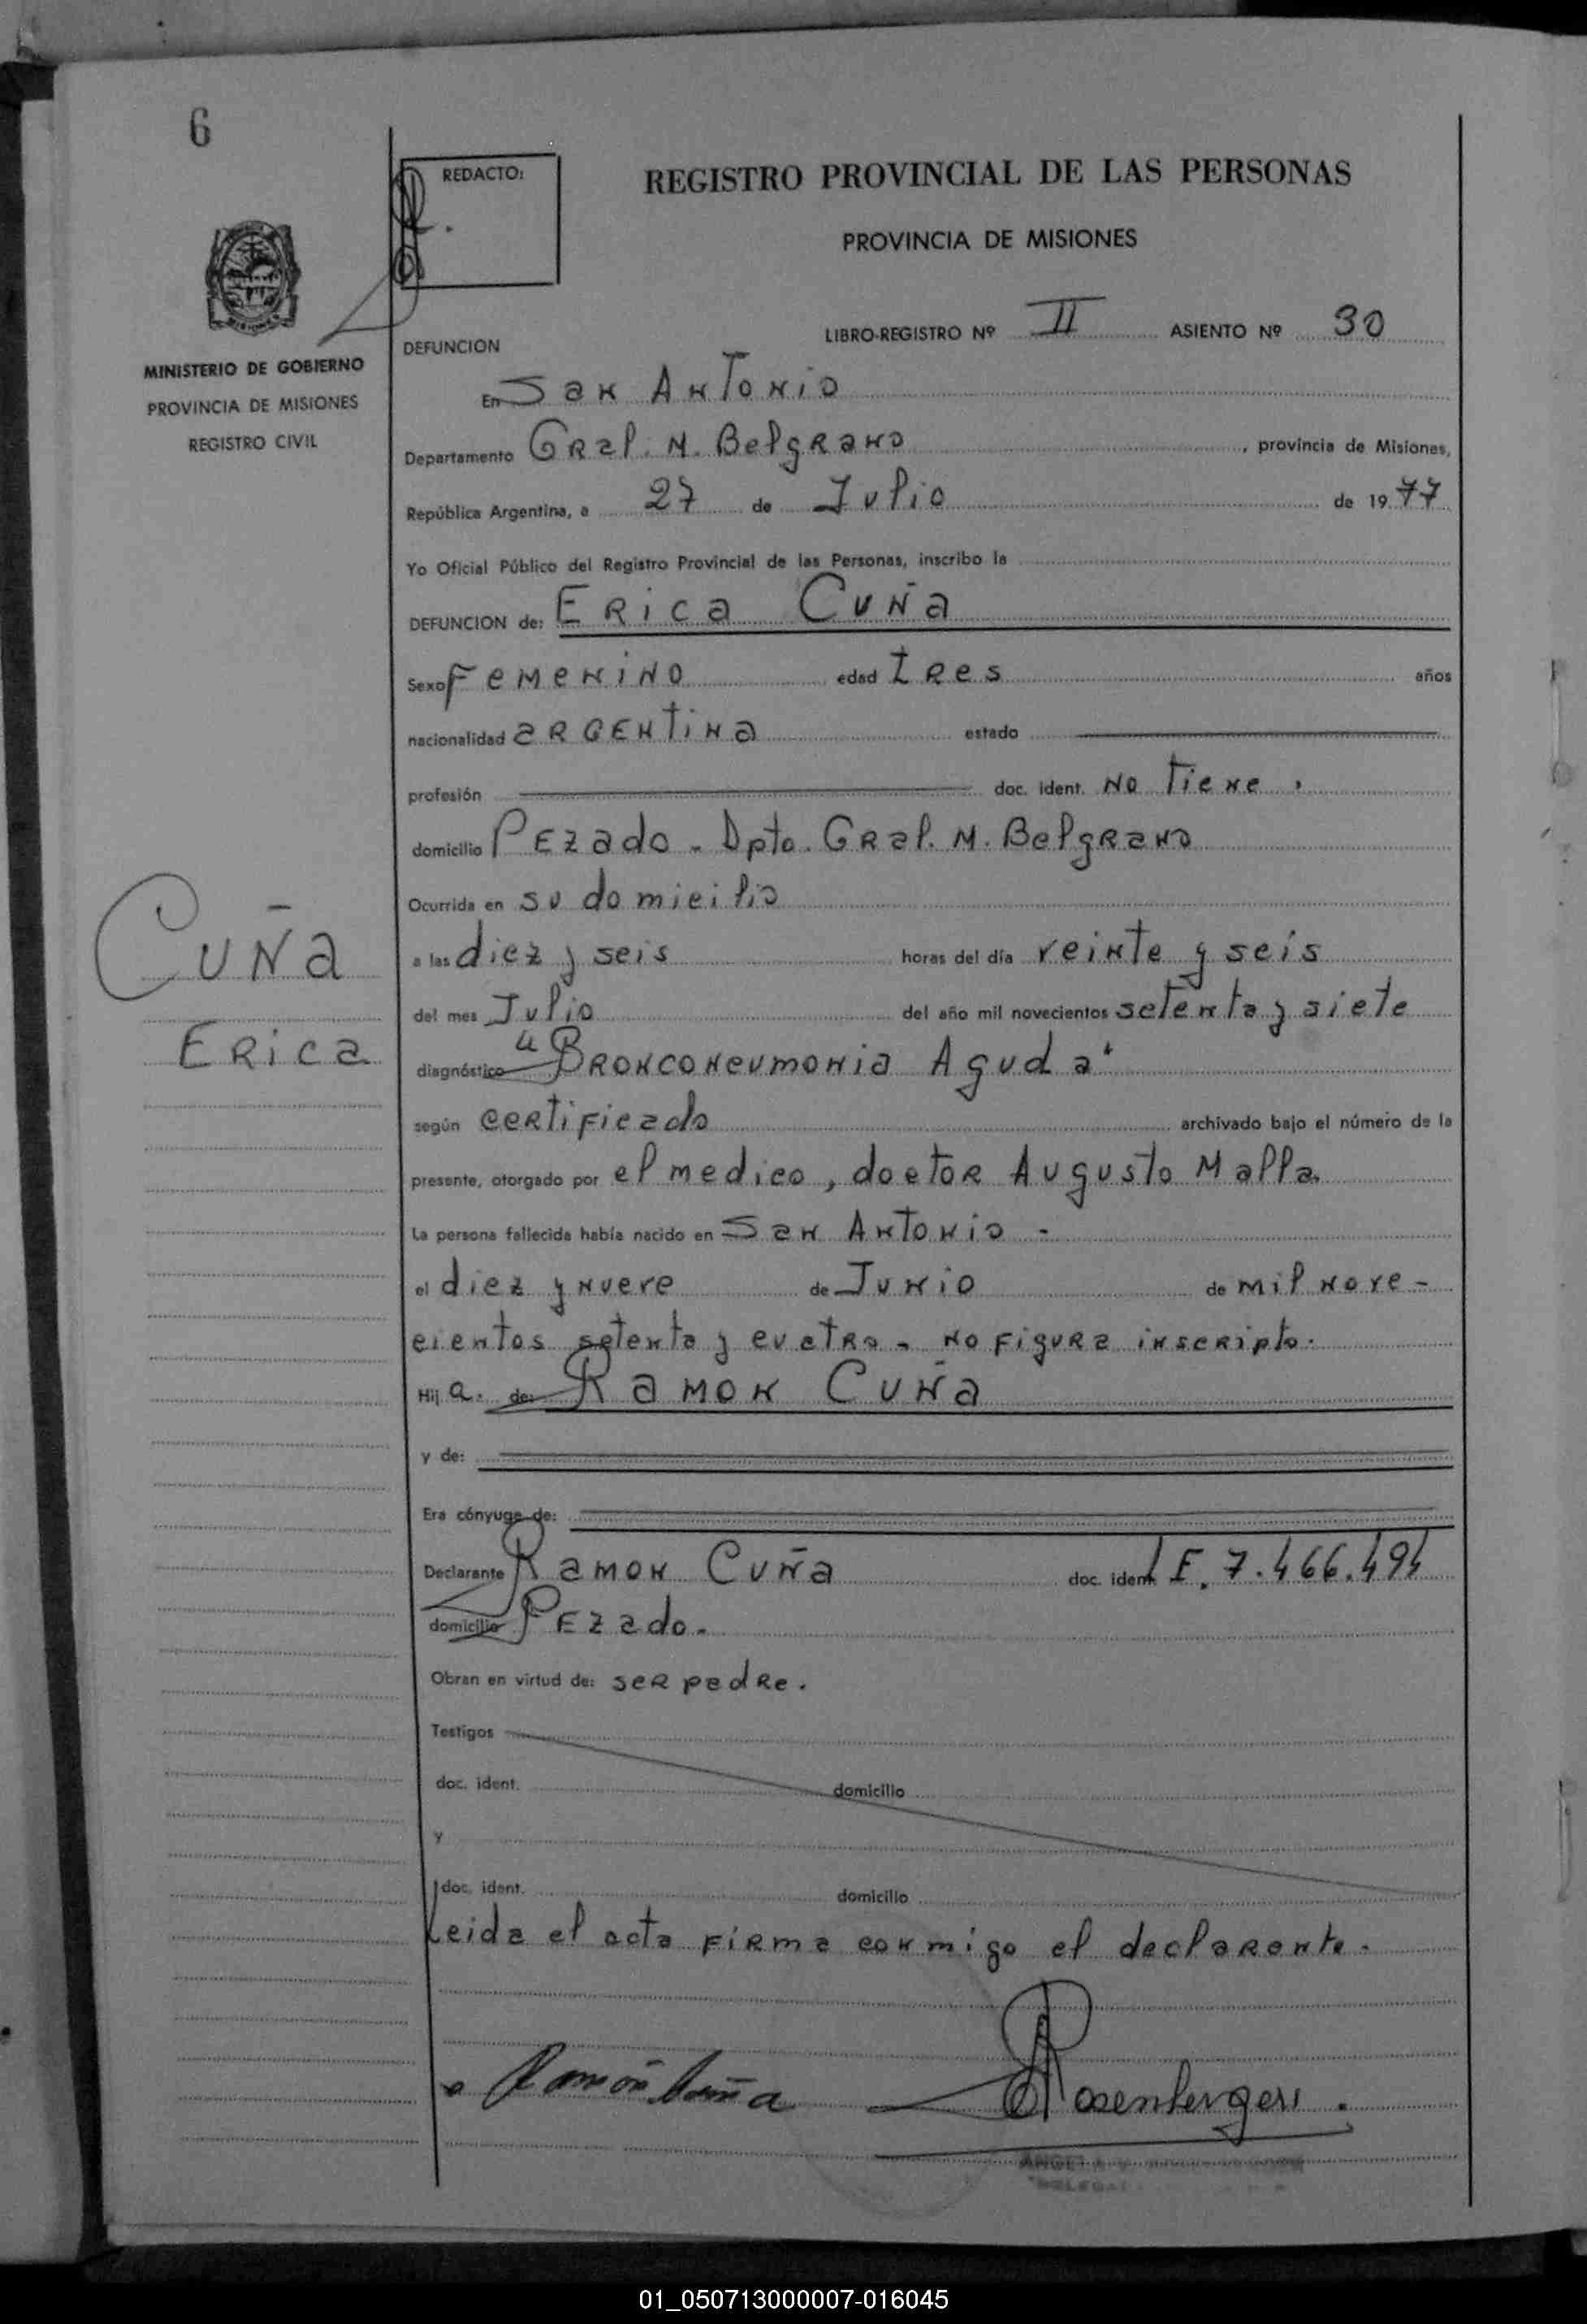 6
REDACTO:
REGISTRO PROVINCIAL DE LAS PERSONAS
PROVINCIA DE MISIONES
MISIONES
MINISTERIO DE GOBIERNO
PROVINCIA DE MISIONES
REGISTRO CIVIL
LIBRO-REGISTRO Nº II ASIENTO Nº 30
DEFUNCION
En San Antonio
Departamento Gral. M. Belgrano, provincia de Misiones,
República Argentina, a 27 de Julio de 1977
Yo Oficial Público del Registro Provincial de las Personas, inscribo la
DEFUNCION de: Erica Cuña
Sexo Femenino edad tres años
nacionalidad argentina estado
profesión doc. ident. no tiene.
domicilio Pezado - Dpto. Gral. M. Belgrano
Ocurrida en su domicilio
a las diez y seis horas del día veinte y seis
del mes Julio del año mil novecientos setenta y siete
diagnóstico "Bronconeumonia Aguda"
según certificado archivado bajo el número de la
presente, otorgado por el medico, doctor Augusto Malla.
La persona fallecida había nacido en San Antonio -
el diez y nueve de Junio de mil nove-
cientos setenta y cuatro - no figura inscripto.
Hij a. de: Ramon Cuña
y de:
Era cónyuge de:
Declarante Ramon Cuña doc. ident. L.E. 7.466.494
domicilio Pezado.
Obran en virtud de: ser padre.
Testigos
doc. ident. domicilio
y
doc. ident. domicilio
Leida el acta firma conmigo el declarante.
Ramón Cuña
Rosenberger
Cuña
Erica
01_050713000007-016045